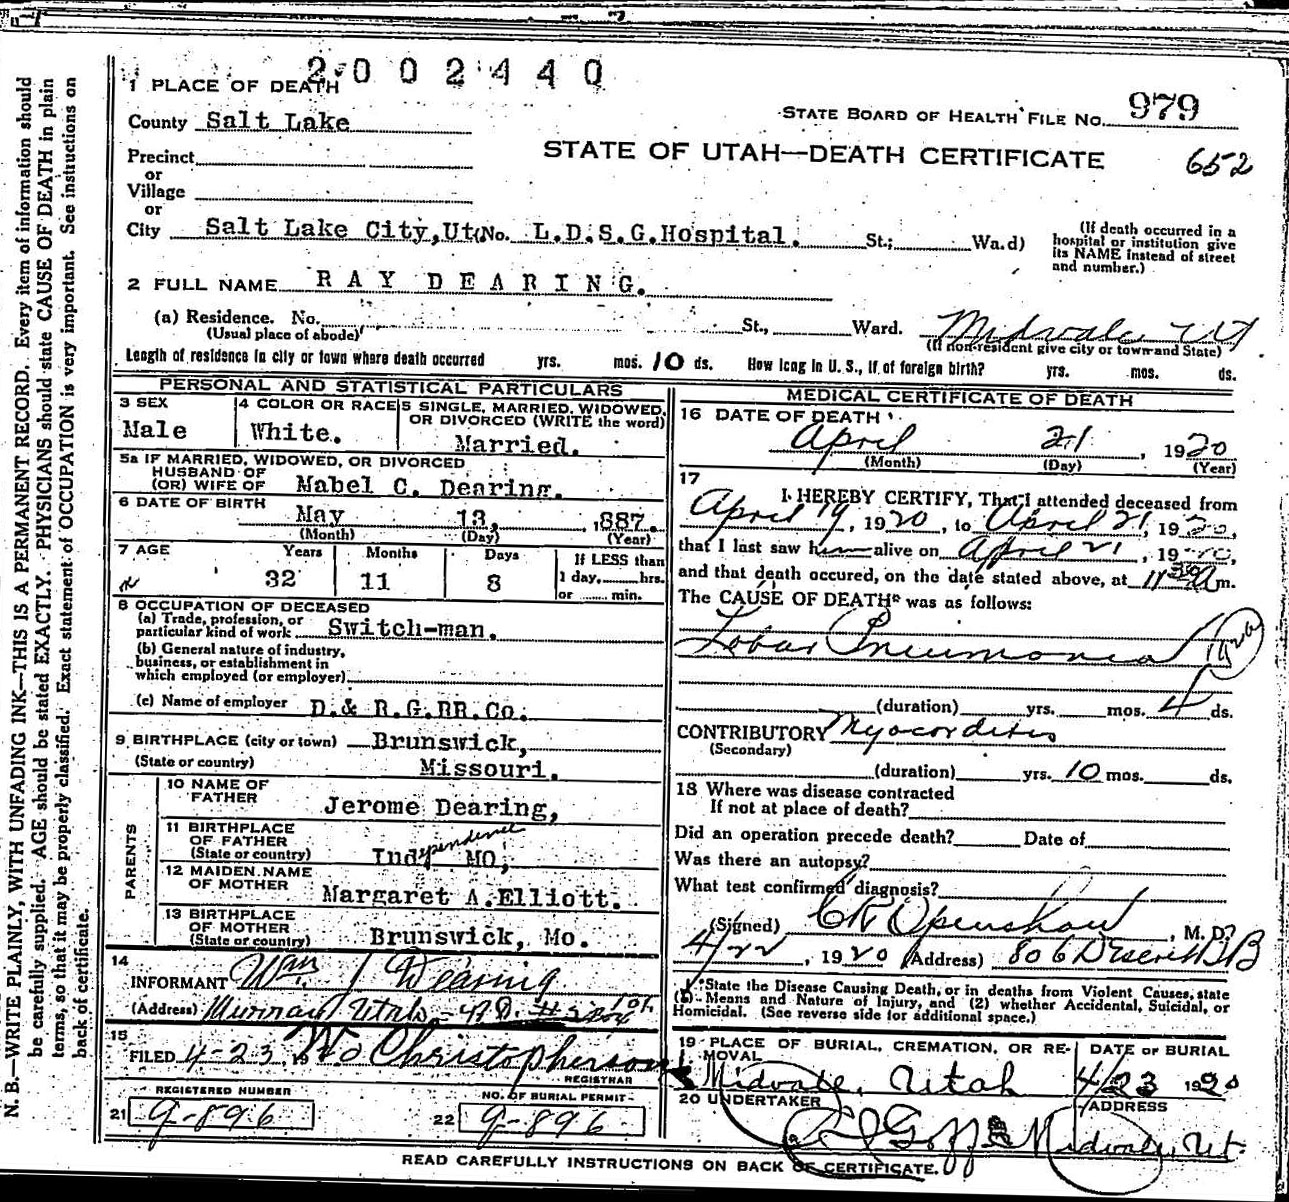 2002440
1 PLACE OF DEATH
STATE BOARD OF HEALTH FILE No. 979
County Salt Lake
STATE OF UTAH—DEATH CERTIFICATE 652
Precinct
or
Village
or
City Salt Lake City, Ut (No. L.D.S.G.Hospital. St.; Wa.d)
(If death occurred in a hospital or institution give its NAME instead of street and number.)
2 FULL NAME RAY DEARING.
(a) Residence. No. St., Ward. Midvale Ut
(Usual place of abode) (If non-resident give city or town and State)
Length of residence in city or town where death occurred yrs. mos. 10 ds. How long in U. S., if of foreign birth? yrs. mos. ds.
PERSONAL AND STATISTICAL PARTICULARS
3 SEX
Male
4 COLOR OR RACE
White.
5 SINGLE, MARRIED, WIDOWED, OR DIVORCED (WRITE the word)
Married.
5a IF MARRIED, WIDOWED, OR DIVORCED
HUSBAND OF
(OR) WIFE OF Mabel C. Dearing.
6 DATE OF BIRTH
May 13, 1887.
(Month) (Day) (Year)
7 AGE Years Months Days If LESS than
32 11 8 1 day, hrs.
or min.
8 OCCUPATION OF DECEASED
(a) Trade, profession, or
particular kind of work Switch-man.
(b) General nature of industry,
business, or establishment in
which employed (or employer)
(c) Name of employer D.& R.G.RR.Co.
9 BIRTHPLACE (city or town) Brunswick,
(State or country) Missouri.
PARENTS
10 NAME OF
FATHER Jerome Dearing,
11 BIRTHPLACE
OF FATHER
(State or country) Independence MO,
12 MAIDEN NAME
OF MOTHER Margaret A.Elliott.
13 BIRTHPLACE
OF MOTHER
(State or country) Brunswick, Mo.
14
INFORMANT Wm J Dearing
(Address) Murray Utah
15
FILED 4-23 Christopherson
REGISTRAR
REGISTERED NUMBER
21 9-896
NO. OF BURIAL PERMIT
22 9-896
MEDICAL CERTIFICATE OF DEATH
16 DATE OF DEATH
April 21, 1920
(Month) (Day) (Year)
17
I HEREBY CERTIFY, That I attended deceased from
April 19, 1920, to April 21, 1920,
that I last saw him alive on April 21, 1920,
and that death occured, on the date stated above, at 11 30 A m.
The CAUSE OF DEATH* was as follows:
Lobar Pneumonia
(duration) yrs. mos. 4 ds.
CONTRIBUTORY Myocorditis
(Secondary)
(duration) yrs. 10 mos. ds.
18 Where was disease contracted
If not at place of death?
Did an operation precede death? Date of
Was there an autopsy?
What test confirmed diagnosis?
(Signed) C R Openshaw, M. D.
4/22, 1920 (Address) 806 Deseret B B
*State the Disease Causing Death, or in deaths from Violent Causes, state
(1) Means and Nature of Injury, and (2) whether Accidental, Suicidal, or
Homicidal. (See reverse side for additional space.)
19 PLACE OF BURIAL, CREMATION, OR RE-
MOVAL
Midvale, Utah
DATE OF BURIAL
4/23 1920
20 UNDERTAKER
Goff
ADDRESS
Midvale, Ut.
READ CAREFULLY INSTRUCTIONS ON BACK OF CERTIFICATE.
N. B.—WRITE PLAINLY, WITH UNFADING INK—THIS IS A PERMANENT RECORD. Every item of information should
be carefully supplied. AGE should be stated EXACTLY. PHYSICIANS should state CAUSE OF DEATH in plain
terms, so that it may be properly classified. Exact statement of OCCUPATION is very important. See instructions on
back of certificate.